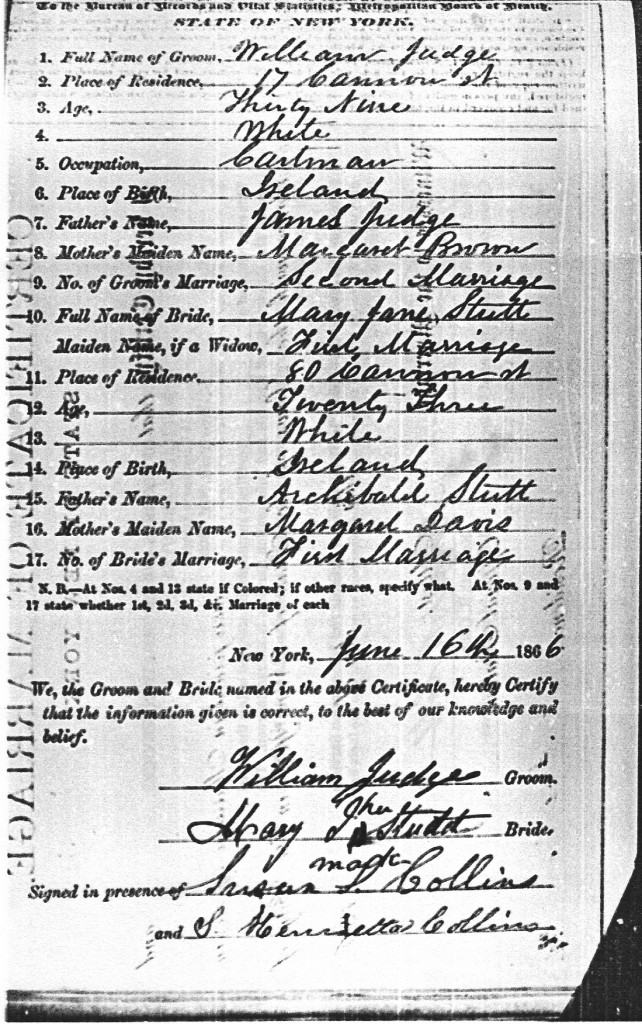 To the Bureau of Records and Vital Statistics, Metropolitan Board of Health,
STATE OF NEW YORK.
1. Full Name of Groom, William Judge
2. Place of Residence, 17 Cannon st
3. Age, Thirty Nine
4. White
5. Occupation, Cartman
6. Place of Birth, Ireland
7. Father's Name, James Judge
8. Mother's Maiden Name, Margaret Brown
9. No. of Groom's Marriage, Second Marriage
10. Full Name of Bride, Mary Jane Stutt
Maiden Name, if a Widow, First Marriage
11. Place of Residence. 80 Cannon st
12. Age, Twenty Three
13. White
14. Place of Birth, Ireland
15. Father's Name, Archibald Stutt
16. Mother's Maiden Name, Margaret Davis
17. No. of Bride's Marriage, First Marriage
N. B.—At Nos. 4 and 13 state if Colored; if other races, specify what. At Nos. 9 and
17 state whether 1st, 2d, 3d, &c. Marriage of each
New York, June 16th 1866
We, the Groom and Bride named in the above Certificate, hereby Certify
that the information given is correct, to the best of our knowledge and
belief.
William Judge Groom.
her
Mary J Stutt Bride.
mark
Signed in presence of Susan S. Collins
and S. Henrietta Collins
CERTIFICATE OF MARRIAGE
STATE OF NEW YORK